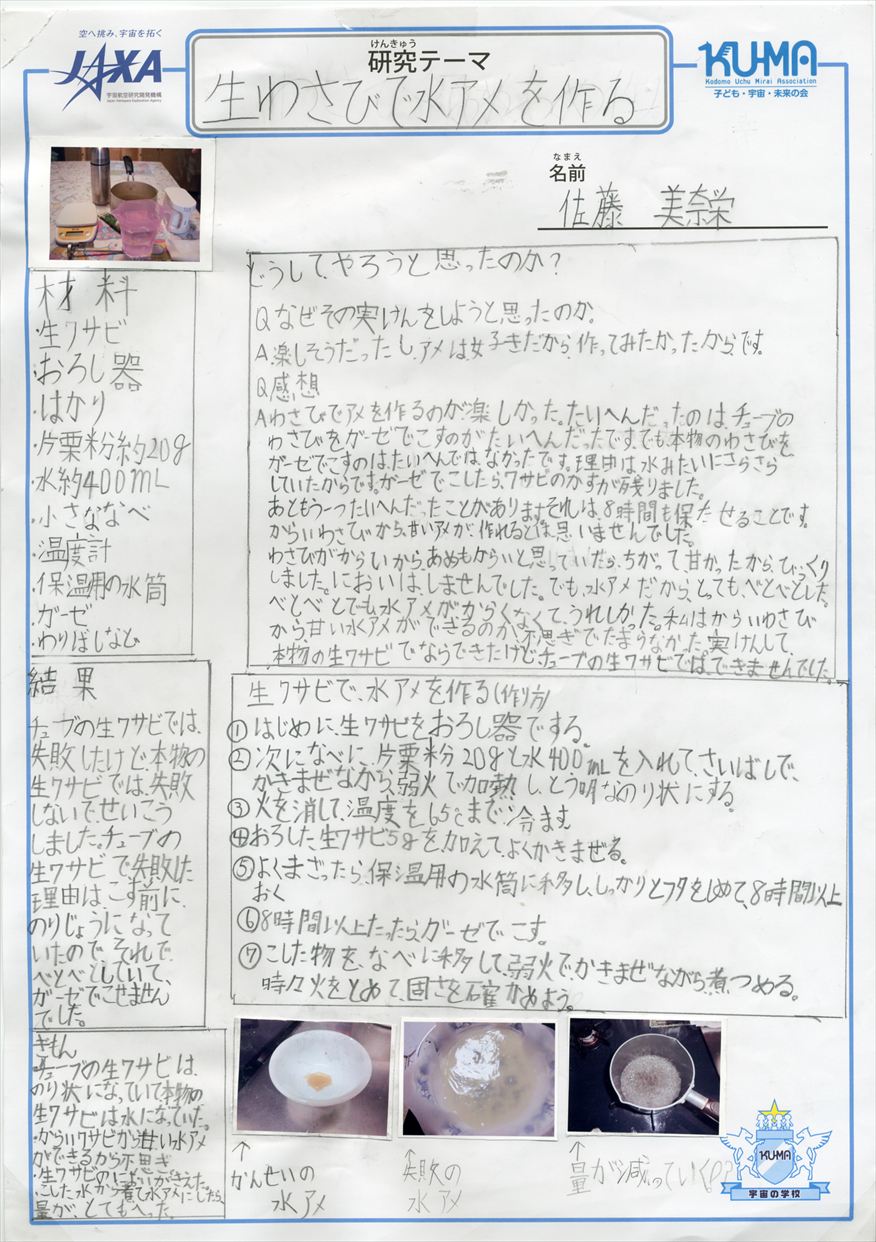 空へ挑み、宇宙を拓く
JAXA
宇宙航空研究開発機構
Japan Aerospace Exploration Agency
けんきゅう
研究テーマ
生わさびで水アメを作る
KU-MA
Kodomo Uchu Mirai Association
子ども・宇宙・未来の会
なまえ
名前
佐藤 美奈栄
材料
・生ワサビ
・おろし器
・はかり
・片栗粉約20g
・水約400mL
・小さななべ
・温度計
・保温用の水筒
・ガーゼ
・わりばしなど
どうして、やろうと思ったのか?
Qなぜその実けんをしようと思ったのか。
A楽しそうだったし、アメは好きだから、作ってみたかったからです。
Q感想
Aわさびでアメを作るのが楽しかった。たいへんだったのは、チューブの
わさびをガーゼでこすのがたいへんだったです。でも、本物のわさびを
ガーゼでこすのは、たいへんではなかったです。理由は水みたいにさらさら
していたからです。ガーゼでこしたら、ワサビのかすが残りました。
あともう一つたいへんだったことがあります。それは、8時間も保たせることです。
からいわさびから、甘いアメが、作れるとは思いませんでした。
わさびがからいから、あめもからいと思っていたら、ちがって甘かったから、びっくり
しました。においは、しませんでした。でも、水アメだから、とっても、べとべとした。
べとべとでも、水アメがからくなくて、うれしかった。私はからいわさび
から甘い水アメができるのが、不思ぎでたまらなかった。実けんして、
本物の生ワサビでならできたけど、チューブの生ワサビでは、できませんでした。
結果
チューブの生ワサビでは、
失敗したけど、本物の
生ワサビでは、失敗
しないで、せいこう
しました。チューブの
生ワサビで失敗した
理由は、こす前に、
のりじょうになって
いたので、それで、
べとべとしていて、
ガーゼでこせません
でした。
生ワサビで、水アメを作る(作り方)
①はじめに、生ワサビをおろし器でする。
②次になべに、片栗粉20gと水400mLを入れて、さいばしで、
かきまぜながら、弱火で加熱し、とう明なのり状にする。
③火を消して、温度を65℃まで冷ます
④おろした生ワサビ5gを加えて、よくかきまぜる。
⑤よくまざったら、保温用の水筒に移し、しっかりとフタをしめて、8時間以上
おく
⑥8時間以上たったら、ガーゼでこす。
⑦こした物を、なべに移して、弱火で、かきまぜながら、煮つめる。
時々火をとめて、固さを確かめよう。
ぎもん
・チューブの生ワサビは、
のり状になっていて本物の
生ワサビは水になっていた。
・からいワサビから甘い水アメ
ができるから不思ぎ
・生ワサビのにおいがきえた。
・こした水から煮て水アメにしたら、
量が、とてもへった。
↑
かんせいの
水アメ
↑
失敗の
水アメ
↑
量が減っていく??
KU-MA
宇宙の学校